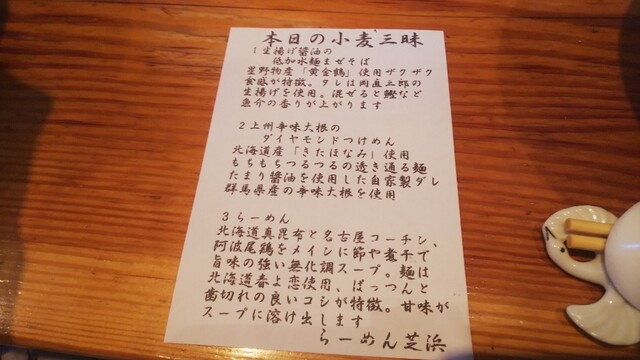 本日の小麦三昧
1生揚げ醤油の
低加水麺まぜそば
星野物産「黄金鶴」使用ザクザク
食感が特徴。タレは岡直三郎の
生揚げを使用。混ぜると鰹など
魚介の香りが上がります
2上州辛味大根の
ダイヤモンドつけめん
北海道産「きたほなみ」使用
もちもちつるつるの透き通る麺
たまり醤油を使用した自家製ダレ
群馬県産の辛味大根を使用
3らーめん
北海道真昆布と名古屋コーチン、
阿波尾鶏をメインに節や煮干で
旨味の強い無化調スープ。麺は
北海道春よ恋使用、ぱっつんと
歯切れの良いコシが特徴。甘味が
スープに溶け出します
らーめん芝浜